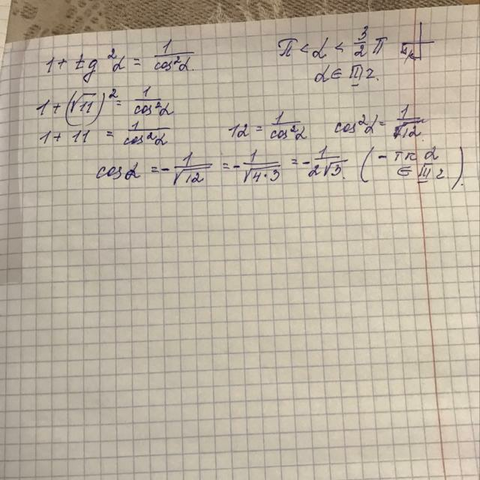 1 + tg²α = 1/cos²α.
π < α < 3/2 π
α ∈ III г.
1 + (√11)² = 1/cos²α
1 + 11 = 1/cos²α 12 = 1/cos²α cos²α = 1/√12.
cos α = - 1/√12 = - 1/√4·3 = - 1/2√3. (- тк α ∈ III г.)